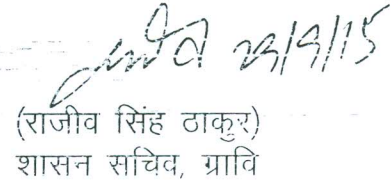 29/9/15
(राजीव सिंह ठाकुर)
शासन सचिव, ग्रावि